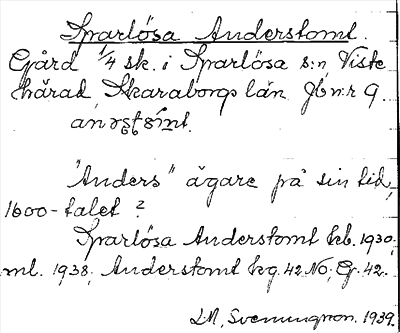 Sparlösa Anderstomt.
Gård 1/4 sk. i Sparlösa s:n, Viste
härad, Skaraborgs län. Jb.n:r 9.
"Anders" ägare på sin tid,
1600-talet?
Sparlösa Anderstomt kb. 1930;
ml. 1938; Anderstomt kg. 42 NO; G. 42.
1939.